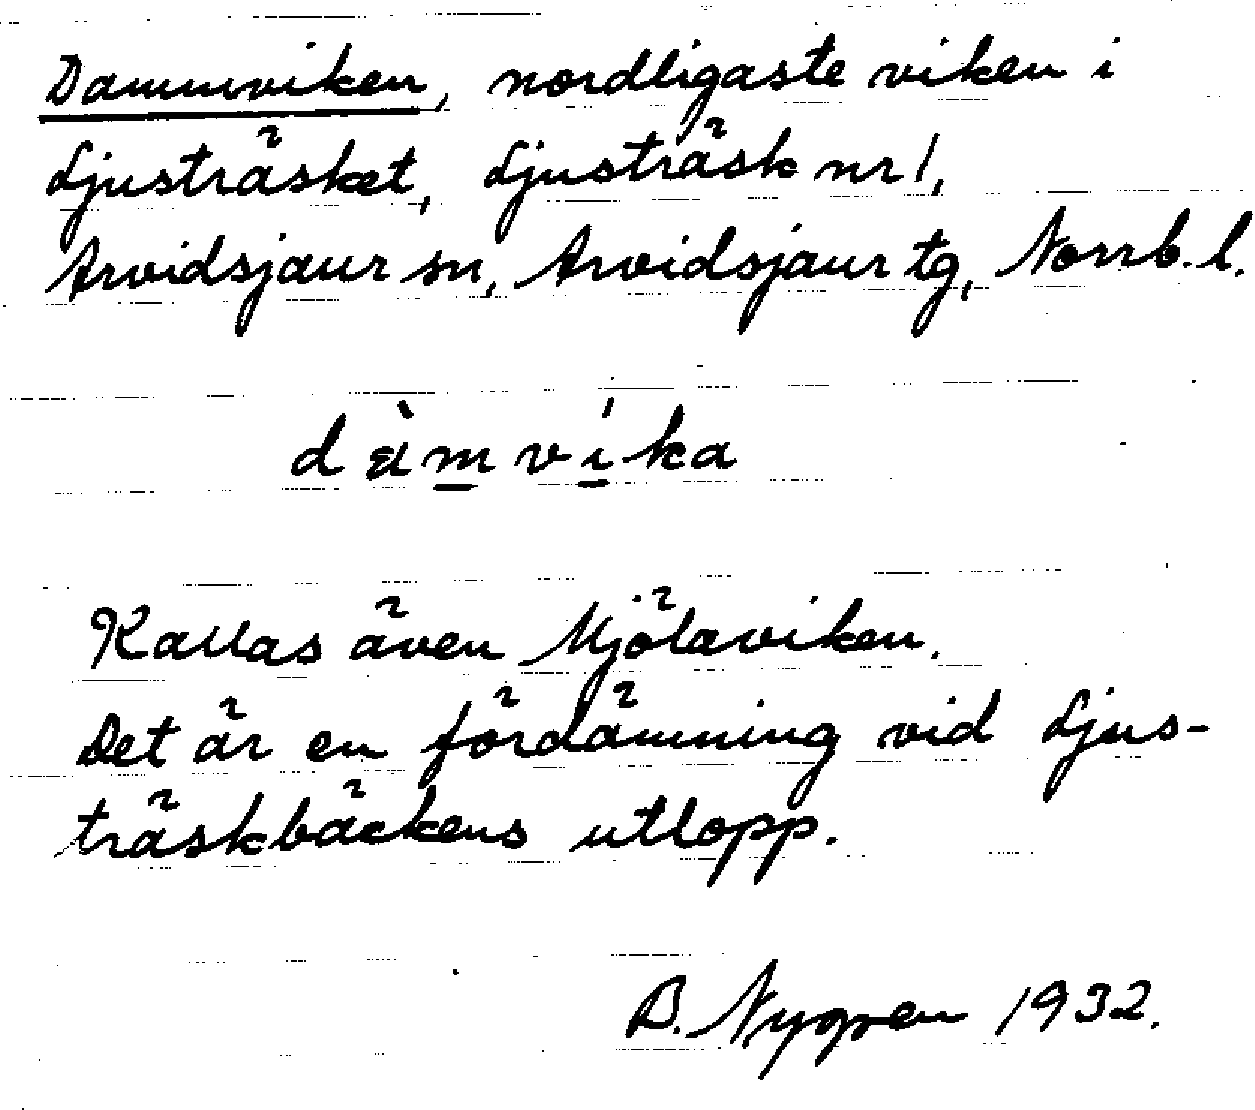 Dammviken, nordligaste viken i
Ljusträsket, Ljusträsk nr 1,
Arvidsjaur sn, Arvidsjaur tg, Norrb. l.
dàmvíka
Kallas även Mjölaviken.
Det är en fördämning vid Ljus-
träskbäckens utlopp.
B. Nygren 1932.